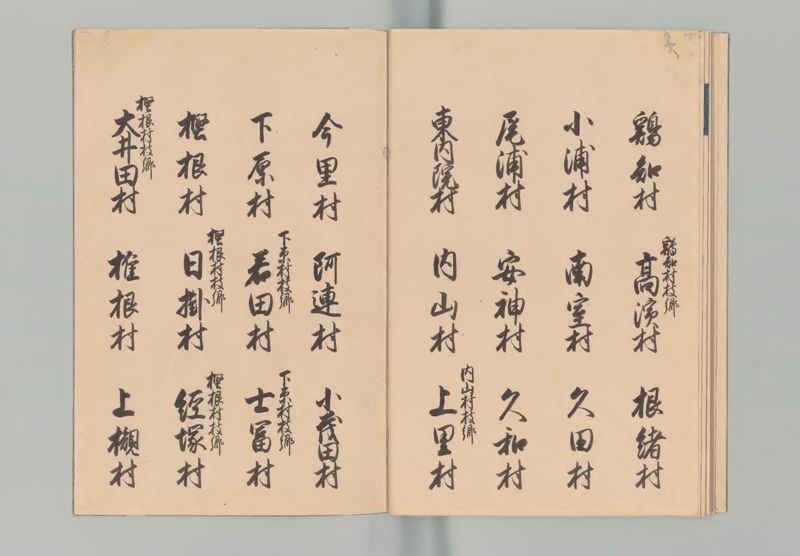 鶏知村
鶏知村枝郷
高濱村
根緒村
小浦村
南室村
久田村
尾浦村
安神村
久和村
東内院村
内山村
内山村枝郷
上里村
今里村
阿連村
小茂田村
下原村
下原村枝郷
若田村
下原村枝郷
士冨村
樫根村
樫根村枝郷
日掛村
樫根村枝郷
經塚村
樫根村枝郷
大井田村
椎根村
上槻村